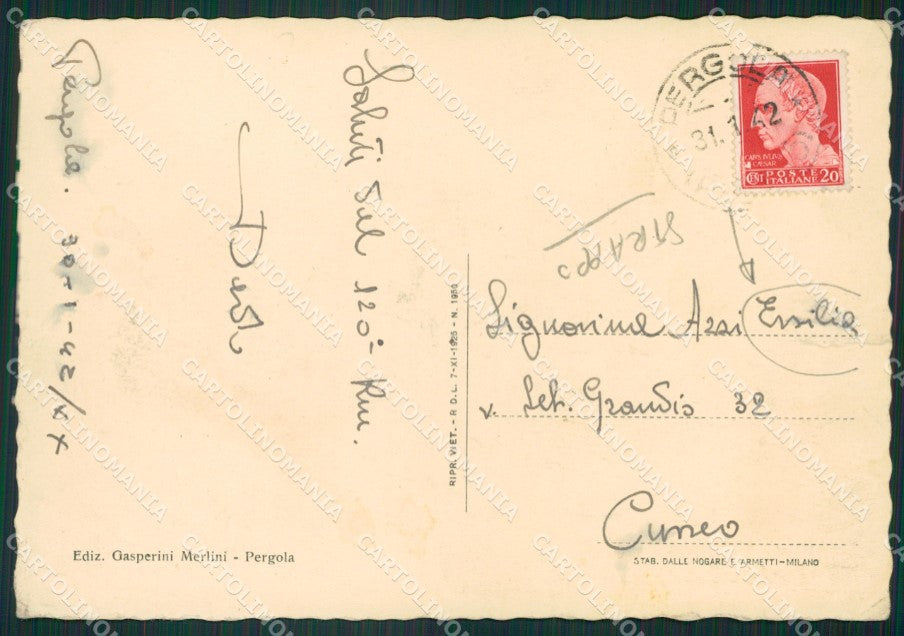 Pergola. 30-1-42/XX
Saluti dal 120° Km.
PERGOLA
31.1.42
CAIVS IVLIVS
CAESAR
POSTE
ITALIANE
CENT 20
STRAPPO
Signorina Assi Ersilia
v. Set. Grandis 32
Cuneo
RIPR. VIET. - R D. L. 7-XI-1925 - N. 1950
Ediz. Gasperini Merlini - Pergola
STAB. DALLE NOGARE E ARMETTI - MILANO
CARTOLINOMANIA